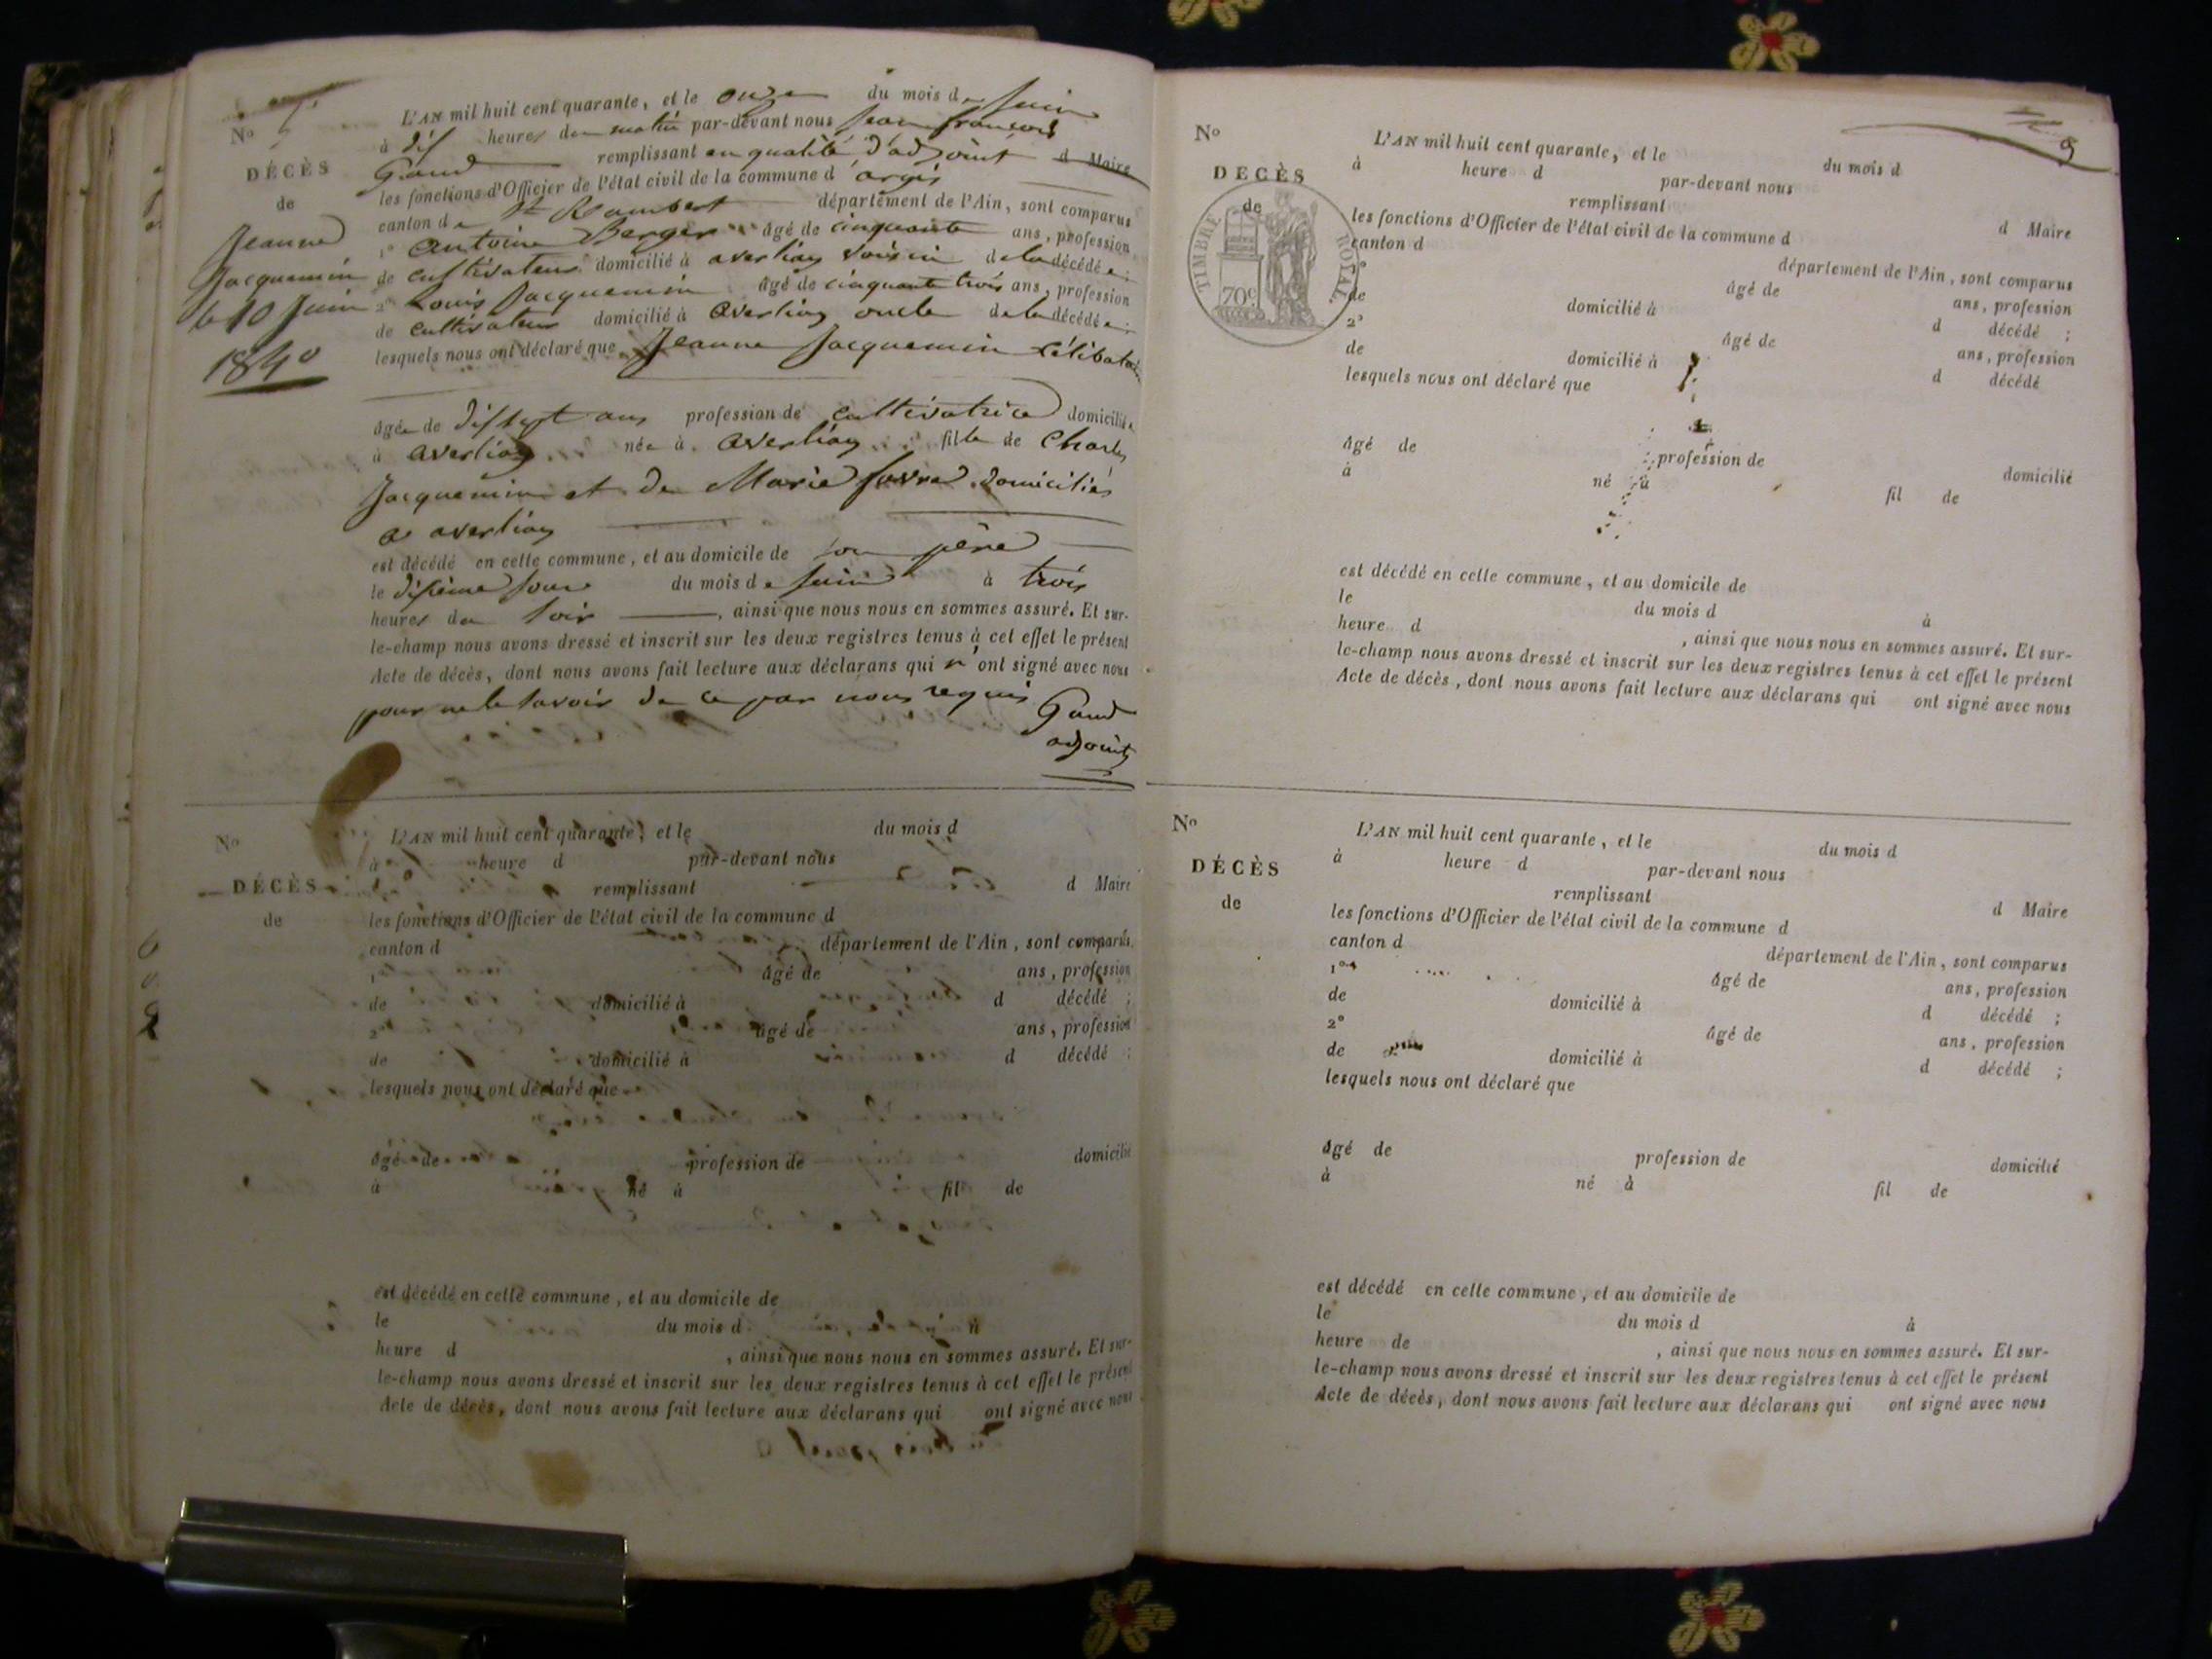 No
DÉCÈS
de
Jeanne
Jacquemin
le 10 Juin
1840
L'AN mil huit cent quarante, et le onze du mois de Juin
à dix heures du matin par-devant nous Jean françois
Gaud remplissant en qualité d'adjoint d Maire
les fonctions d'Officier de l'état civil de la commune d'argis
canton de St Rambert département de l'Ain, sont comparus
1° antoine Berger âgé de cinquante ans, profession
de cultivateur domicilié à averliaz voisin de la décédée;
2° Louis Jacquemin âgé de cinquante trois ans, profession
de cultivateur domicilié à averliaz oncle de la décédée;
lesquels nous ont déclaré que Jeanne Jacquemin célibataire
âgée de dixsept ans profession de cultivatrice domiciliée
à averliaz née à averliaz fille de Charles
Jacquemin et de Marie favre domiciliés
a averliaz
est décédé en cette commune, et au domicile de son père
le dixième jour du mois de juin à trois
heures du soir , ainsi que nous nous en sommes assuré. Et sur-
le-champ nous avons dressé et inscrit sur les deux registres tenus à cet effet le présent
Acte de décès, dont nous avons fait lecture aux déclarans qui n'ont signé avec nous
pour ne le savoir de ce par nous requis Gaud
adjoint
No
DÉCÈS
de
L'AN mil huit cent quarante, et le du mois d
à heure d par-devant nous
remplissant d Maire
les fonctions d'Officier de l'état civil de la commune d
canton d département de l'Ain, sont comparus
1° âgé de ans, profession
de domicilié à d décédé ;
2° âgé de ans, profession
de domicilié à d décédé ;
lesquels nous ont déclaré que
âgé de profession de domicilié
à né à fil de
est décédé en cette commune, et au domicile de
le du mois d à
heure d , ainsi que nous nous en sommes assuré. Et sur-
le-champ nous avons dressé et inscrit sur les deux registres tenus à cet effet le présent
Acte de décès, dont nous avons fait lecture aux déclarans qui ont signé avec nous
9
No
DECÈS
de
TIMBRE ROYAL
70c
L'AN mil huit cent quarante, et le du mois d
à heure d par-devant nous
remplissant d Maire
les fonctions d'Officier de l'état civil de la commune d
canton d département de l'Ain, sont comparus
1° âgé de ans, profession
de domicilié à d décédé ;
2° âgé de ans, profession
de domicilié à d décédé
lesquels nous ont déclaré que
âgé de profession de domicilié
à né à fil de
est décédé en cette commune, et au domicile de
le du mois d à
heure d , ainsi que nous nous en sommes assuré. Et sur-
le-champ nous avons dressé et inscrit sur les deux registres tenus à cet effet le présent
Acte de décès, dont nous avons fait lecture aux déclarans qui ont signé avec nous
No
DÉCÈS
de
L'AN mil huit cent quarante, et le du mois d
à heure d par-devant nous
remplissant d Maire
les fonctions d'Officier de l'état civil de la commune d
canton d département de l'Ain, sont comparus
1° âgé de ans, profession
de domicilié à d décédé ;
2° âgé de ans, profession
de domicilié à d décédé ;
lesquels nous ont déclaré que
âgé de profession de domicilié
à né à fil de
est décédé en cette commune, et au domicile de
le du mois d à
heure de , ainsi que nous nous en sommes assuré. Et sur-
le-champ nous avons dressé et inscrit sur les deux registres tenus à cet effet le présent
Acte de décès, dont nous avons fait lecture aux déclarans qui ont signé avec nous